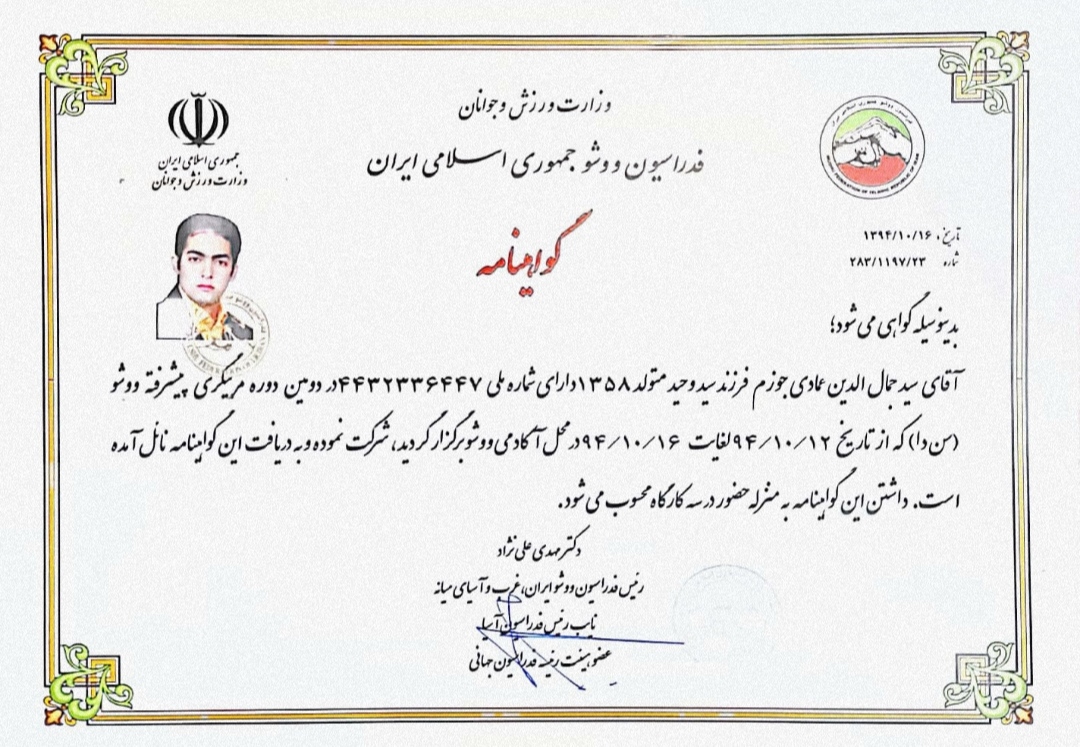 وزارت ورزش و جوانان
فدراسیون ووشو جمهوری اسلامی ایران
جمهوری اسلامی ایران
وزارت ورزش و جوانان
گواهینامه
تاریخ: ۱۳۹۴/۱۰/۱۶
شماره ۲۸۳/۱۱۹۷/۲۳
بدینوسیله گواهی می شود؛
آقای سید جمال الدین عمادی جوزم فرزند سید وحید متولد ۱۳۵۸ دارای شماره ملی ۴۴۳۲۳۳۶۴۴۷ در دومین دوره مربیگری پیشرفته ووشو
(سن دا) که از تاریخ ۹۴/۱۰/۱۲ لغایت ۹۴/۱۰/۱۶ در محل آکادمی ووشو برگزار گردید، شرکت نموده و به دریافت این گواهینامه نائل آمده
است. داشتن این گواهینامه به منزله حضور در سه کارگاه محسوب می شود.
دکتر مهدی علی نژاد
رئیس فدراسیون ووشو ایران، غرب و آسیای میانه
نایب رئیس فدراسیون آسیا
عضو هیئت رئیسه فدراسیون جهانی